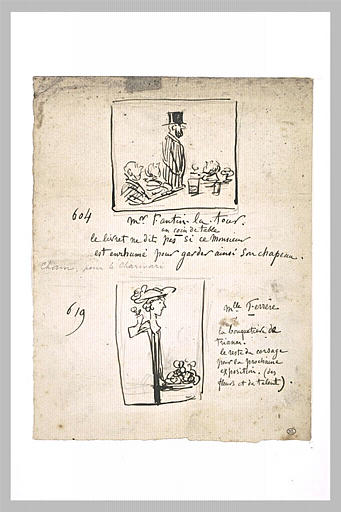 604
mr Fantin-la-tour.
un coin de table
le livret ne dit pas si ce Monsieur
est enrhumé pour garder ainsi son chapeau.
Cham, pour le Charivari
619
mlle Ferrère
la bouquetière de
Trianon.
le reste du corsage
pour la prochaine
exposition. (des
fleurs et du talent).